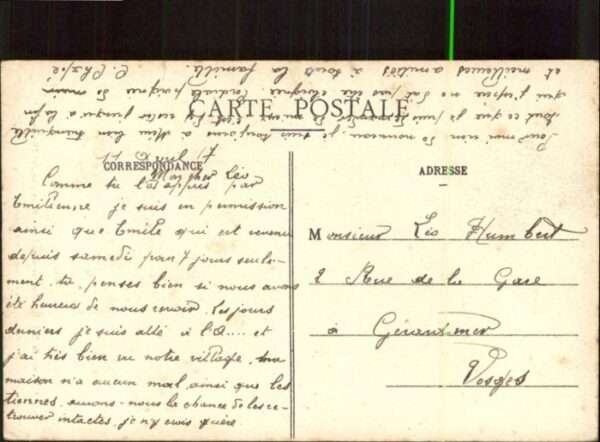 CARTE POSTALE
CORRESPONDANCE
ADRESSE
11 Avril 17
Mon cher Léo
Comme tu l'as appris par
Emilienne je suis en permission
ainsi que Emile qui est revenu
depuis samedi pour 7 jours seule-
ment. tu penses bien si nous avons
été heureux de nous revoir. Les jours
derniers je suis allé à l'A.... et
j'ai très bien vu notre village. ma
maison n'a aucun mal ainsi que les
tiennes, aurons-nous la chance de les re-
trouver intactes, je n'y crois guère
Pour moi rien de nouveau, je suis toujours à bon tranquille
tout ce que je puis demander
que j'espère ne sera pas très éloignée. Cordiale poignée de main
et meilleures amitiés à toute la famille.
Monsieur Léo Humbert
2 Rue de la Gare
à Gérardmer
Vosges